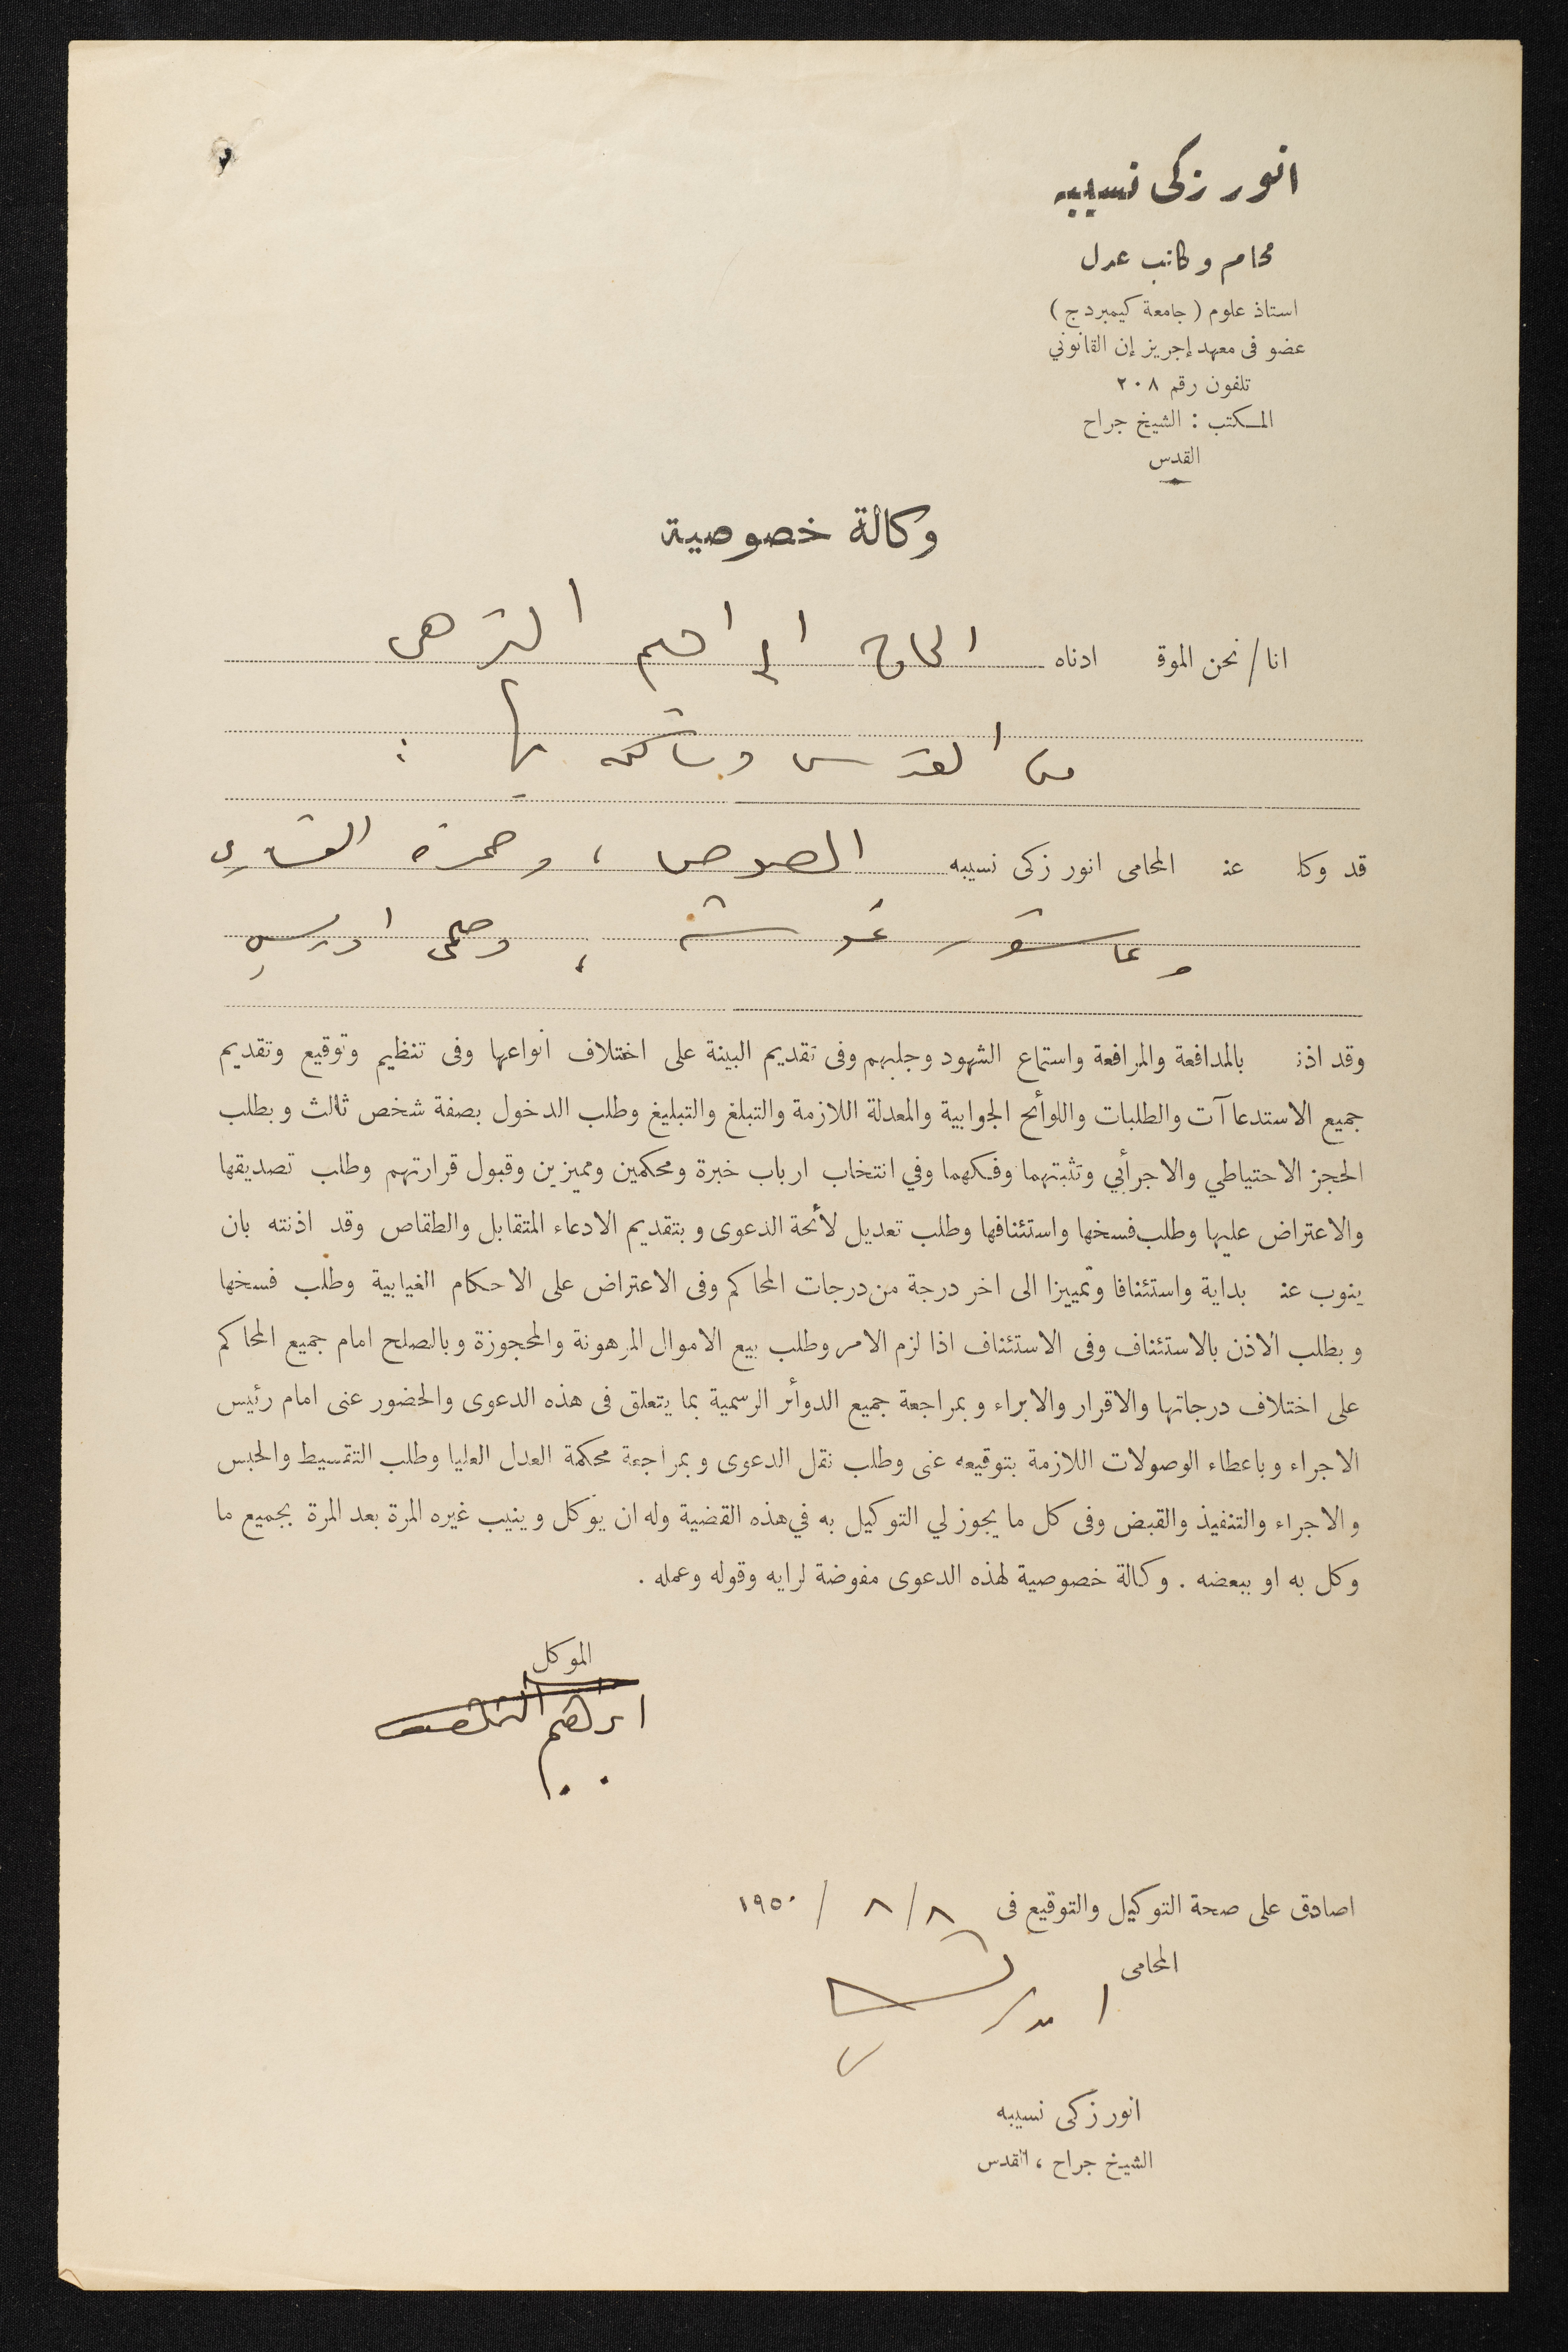 انور زكى نسيبه
محام وكاتب عدل
استاذ علوم (جامعة كيمبردج)
عضو فى معهد إجريز إن القانوني
تلفون رقم ٢٠٨
المكتب : الشيخ جراح
القدس
وكالة خصوصية
انا/نحن الموقع ادناه الحاج ابراهيم الترهى
من القدس وساكن بها :
قد وكل عن المحامى انور زكى نسيبه ، وحمزه
وعاشور غوشه ، ادريس
وقد اذن بالمدافعة والمرافعة واستماع الشهود وجلبهم وفى تقديم البينة على اختلاف انواعها وفى تنظيم وتوقيع وتقديم
جميع الاستدعاآت والطلبات واللوأئح الجوابية والمعدلة اللازمة والتبلغ والتبليغ وطلب الدخول بصفة شخص ثالث وبطلب
الحجز الاحتياطي والاجرأئي وتثبتهما وفكهما وفي انتخاب ارباب خبرة ومحكمين ومميزين وقبول قرارتهم وطلب تصديقها
والاعتراض عليها وطلب فسخها واستئنافها وطلب تعديل لأئحة الدعوى وبتقديم الادعاء المتقابل والطقاص وقد اذنته بان
ينوب عن بداية واستئنافا وتمييزا الى اخر درجة من درجات المحاكم وفى الاعتراض على الاحكام الغيابية وطلب فسخها
وبطلب الاذن بالاستئناف وفى الاستئناف اذا لزم الامر وطلب بيع الاموال المرهونة والمحجوزة وبالصلح امام جميع المحاكم
على اختلاف درجاتها والاقرار والابراء وبمراجعة جميع الدوأئر الرسمية بما يتعلق فى هذه الدعوى والحضور عنى امام رئيس
الاجراء وباعطاء الوصولات اللازمة بتوقيعه عنى وطلب نقل الدعوى وبمراجعة محكمة العدل العليا وطلب التقسيط والحبس
والاجراء والتنفيذ والقبض وفى كل ما يجوز لي التوكيل به في هذه القضية وله ان يوكل وينيب غيره المرة بعد المرة بجميع ما
وكل به او ببعضه . وكالة خصوصية لهذه الدعوى مفوضة لرايه وقوله وعمله .
الموكل
ابراهيم
اصادق على صحة التوكيل والتوقيع فى ٨/٨ / ١٩٥٠
المحامى
انور زكى نسيبه
الشيخ جراح ، القدس